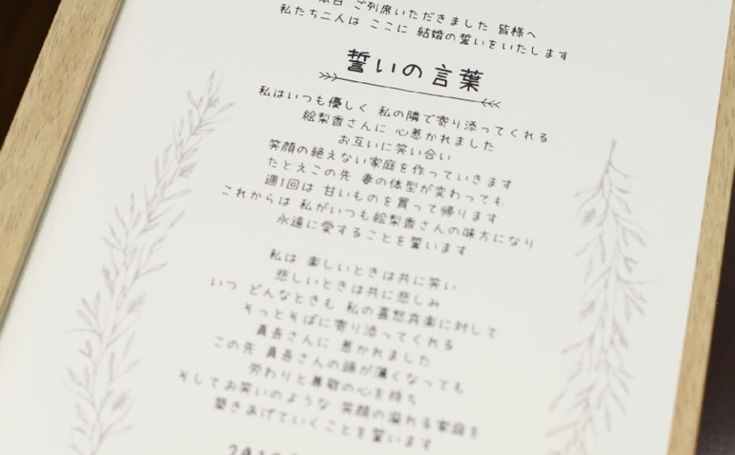 本日 ご列席いただきました 皆様へ
私たち二人は ここに 結婚の誓いをいたします
誓いの言葉
私はいつも優しく 私の隣で寄り添ってくれる
絵梨香さんに 心惹かれました
お互いに笑い合い
笑顔の絶えない家庭を作っていきます
たとえこの先 妻の体型が変わっても
週1回は 甘いものを買って帰ります
これからは 私がいつも絵梨香さんの味方になり
永遠に愛することを誓います
私は 楽しいときは共に笑い
悲しいときは共に悲しみ
いつ どんなときも 私の喜怒哀楽に対して
そっとそばに寄り添ってくれる
真吾さんに 惹かれました
この先 真吾さんの頭が薄くなっても
労わりと尊敬の心を持ち
そしてお笑いのような 笑顔の溢れる家庭を
築きあげていくことを誓います